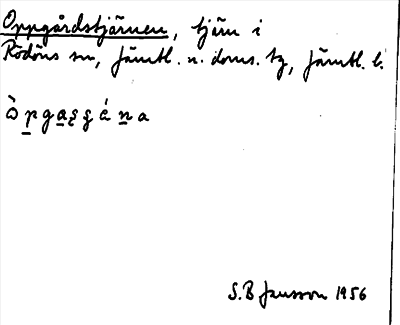 Oppgårdstjärnen, tjärn i
Rödöns sn, Jämtl. n. doms. tg, Jämtl. l.
S.B Jansson 1956